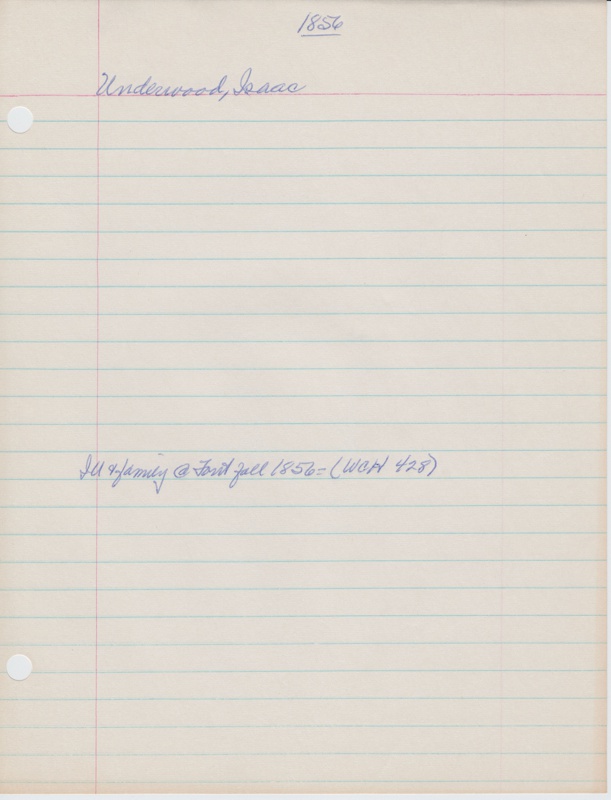 1856
Underwood, Isaac
IU & family @ Fort fall 1856 - (WCH 428)